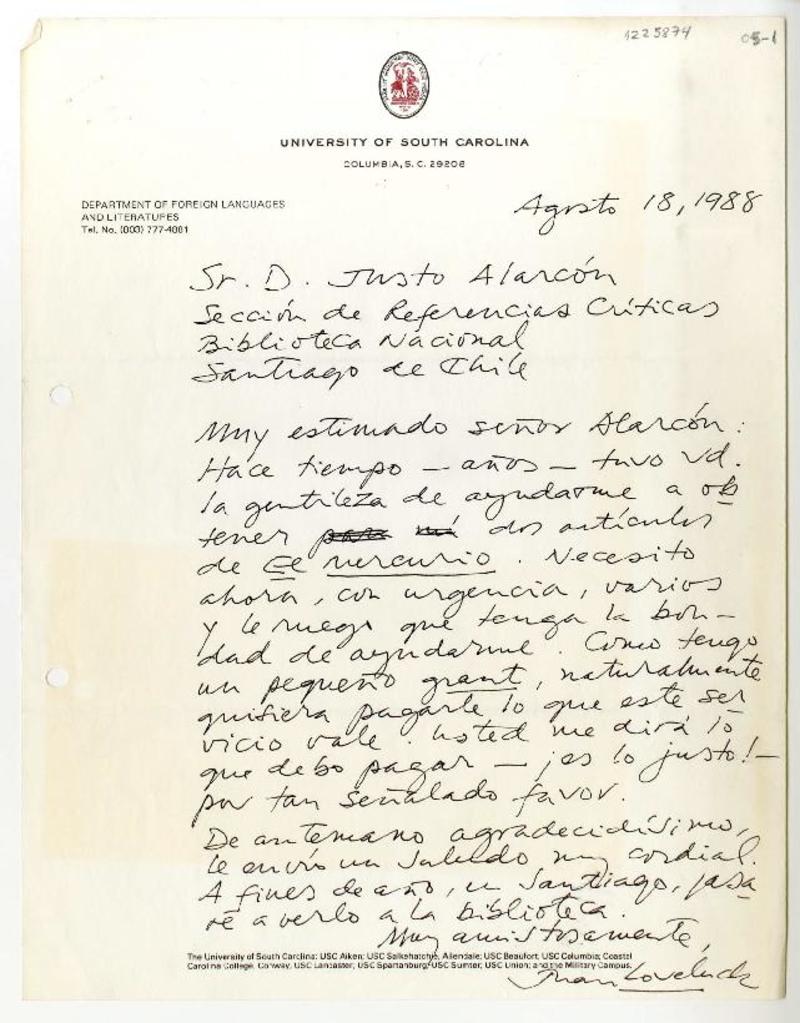 1225874 05-1
UNIVERSITY OF SOUTH CAROLINA
COLUMBIA, S. C. 29208
DEPARTMENT OF FOREIGN LANGUAGES
AND LITERATURES
Tel. No. (803) 777-4881
Agosto 18, 1988
Sr. D. Justo Alarcón
Sección de Referencias Críticas
Biblioteca Nacional
Santiago de Chile
Muy estimado señor Alarcón:
Hace tiempo — años — tuvo Vd.
la gentileza de ayudarme a ob
tener para mí dos artículos
de El Mercurio. Necesito
ahora, con urgencia, varios
y le ruego que tenga la bon-
dad de ayudarme. Como tengo
un pequeño grant, naturalmente
quisiera pagarle lo que este ser
vicio vale. Usted me dirá lo
que debo pagar — ¡es lo justo! —
por tan señalado favor.
De antemano agradecidísimo,
le envío un saludo muy cordial.
A fines de año, en Santiago, pasa
ré a verlo a la biblioteca.
Muy amistosamente,
The University of South Carolina: USC Aiken; USC Salkehatchie, Allendale; USC Beaufort; USC Columbia; Coastal
Carolina College, Conway; USC Lancaster; USC Spartanburg; USC Sumter; USC Union; and the Military Campus.
Juan Loveluck